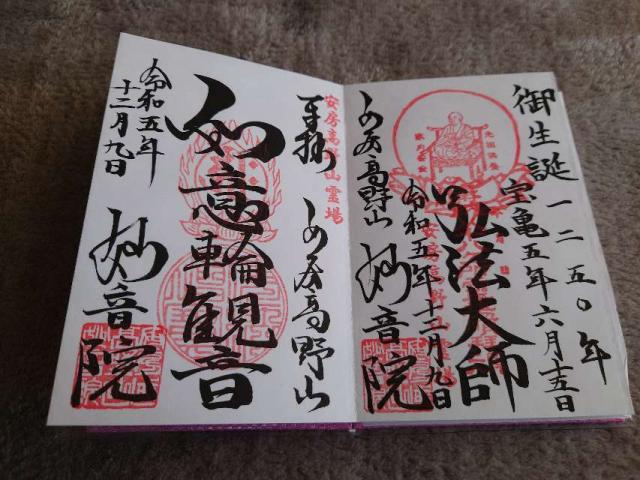 御生誕一二五〇年
宝亀五年六月十五日
弘法大師
令和五年十二月九日
あ房高野山
妙音院
安房高野山霊場
奉拝
あ房高野山
如意輪観音
妙音院
令和五年
十二月九日